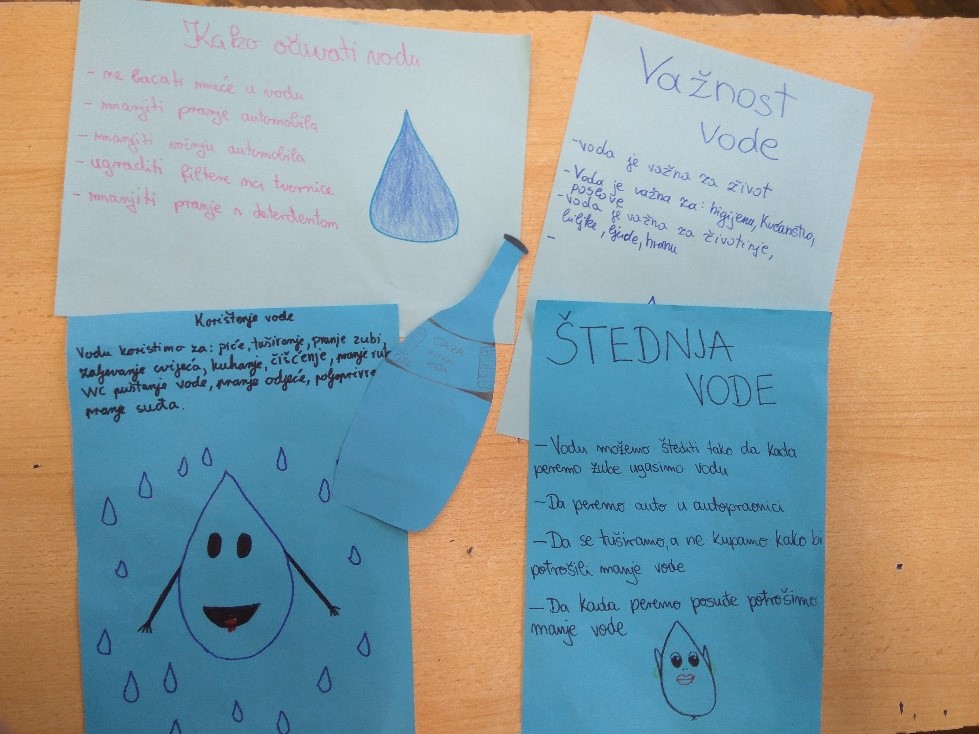 Kako očuvati vodu
- ne bacati smeće u vodu
- smanjiti pranje automobila
- smanjiti vožnju automobila
- ugraditi filtere na tvornice
- smanjiti pranje s deterdentom
Važnost
vode
- voda je važna za život
- Voda je važna za: higijenu, Kućanstvo,
poslove
- voda je važna za životinje,
biljke, ljude, hranu
-
Korištenje vode
Vodu koristimo za: piće, tuširanje, pranje zubi,
zaljevanje cvijeća, kuhanje, čišćenje, pranje ruk
WC puštanje vode, pranje odjeće, poljoprivre
pranje suđa.
ŠTEDNJA
VODE
- Vodu možemo štediti tako da kada
peremo zube ugasimo vodu
- Da peremo auto u autopraonici
- Da se tuširamo, a ne kupamo kako bi
potrošili manje vode
- Da kada peremo posuđe potrošimo
manje vode